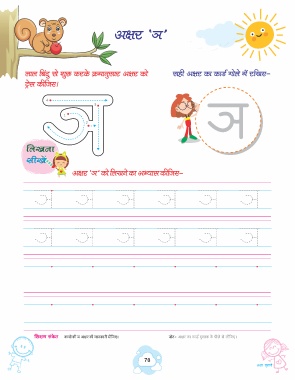 अक्षर 'ञ'
लाल बिंदु से शुरू करके क्रमानुसार अक्षर को
ट्रेस कीजिए।
सही अक्षर का कार्ड गोले में रखिए-
ञ
ञ
लिखना
सीखें
अक्षर 'ञ' को लिखने का अभ्यास कीजिए-
ञ ञ ञ ञ ञ ञ
ञ ञ ञ ञ ञ ञ
शिक्षण संकेत